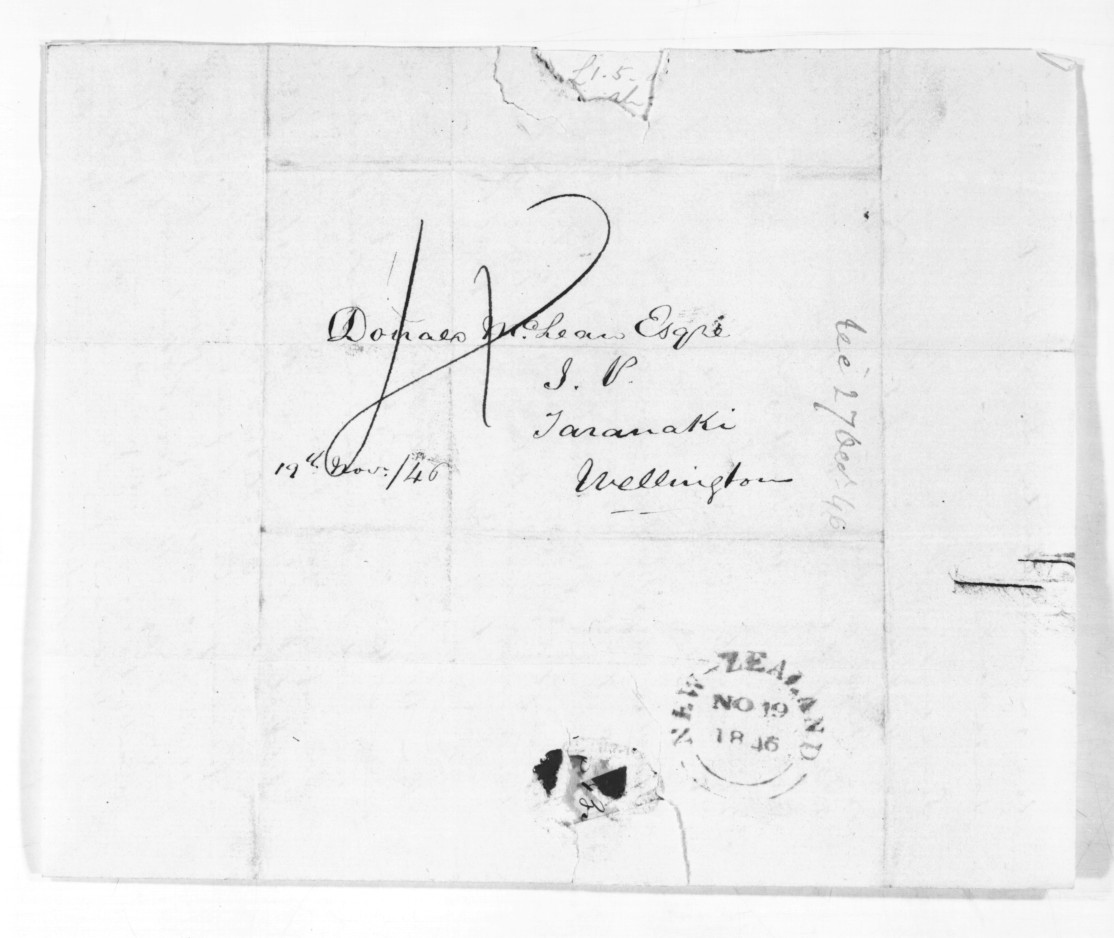 £1.5.
Donald McLean Esqre
J. P.
Taranaki
19th Novr /46
Wellington
rec 27 Decr 46
NEW ZEALAND
NO 19
1846